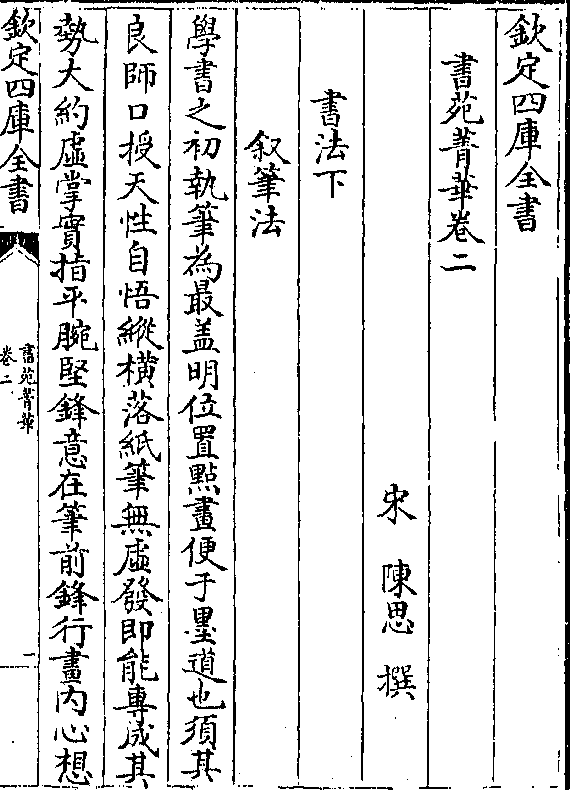 欽定四庫全書
書苑菁華卷二
宋 陳思 撰
書法下
叙筆法
學書之初執筆為最盖明位置點畫便于墨道也須其
良師口授天性自悟縱橫落紙筆無虛發即能專成其
勢大約虛掌實指平腕堅鋒意在筆前鋒行畫内心想
欽定四庫全書
書苑菁華
卷二
一